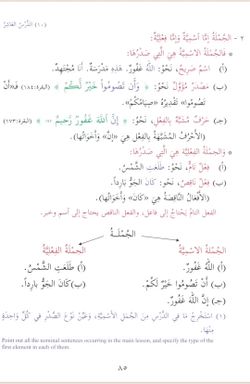 (١٠) الدَّرْسُ العَاشِرُ
٢ - الجُمْلَةُ إِمَّا اسْمِيَّةٌ وَإِمَّا فِعْلِيَّةٌ:
* فَالجُمْلَةُ الاسْمِيَّةُ هِيَ الَّتِي صَدْرُهَا:
(أ) اسْمٌ صَرِيحٌ، نَحْوُ: اللَّهُ غَفُورٌ. هَذِهِ مَدْرَسَةٌ. أَنَا مُجْتَهِدٌ.
(ب) مَصْدَرٌ مُؤَوَّلٌ نَحْوُ: ﴿ وَأَن تَصُومُوا۟ خَيْرٌ لَّكُمْ ﴾ (البقرة:١٨٤) فَـ«أَنْ
تَصُومُوا» تَقْدِيرُهُ «صِيَامُكُمْ».
(ج) حَرْفٌ مُشَبَّهٌ بِالفِعْلِ، نَحْوُ: ﴿ إِنَّ ٱللَّهَ غَفُورٌ رَّحِيمٌ ﴾ (البقرة:١٧٣)
(الأَحْرُفُ المُشَبَّهَةُ بِالفِعْلِ هِيَ «إِنَّ» وَأَخَوَاتُهَا).
* وَالجُمْلَةُ الفِعْلِيَّةُ هِيَ الَّتِي صَدْرُهَا:
(أ) فِعْلٌ تَامٌّ، نَحْوُ: طَلَعَتِ الشَّمْسُ.
(ب) فِعْلٌ نَاقِصٌ، نَحْوُ: كَانَ الجَوُّ بَارِدًا.
(الأَفْعَالُ النَّاقِصَةُ هِيَ «كَانَ» وَأَخَوَاتُهَا).
الفعل التامُّ يَحْتَاجُ إلى فاعل، والفعل الناقص يحتاج إلى اسم وخبر.
الجُمْلَـــةُ
الجُمْلَةُ الاسْمِيَّةُ الجُمْلَةُ الفِعْلِيَّةُ
(أ) اللَّهُ غَفُورٌ. (أ) طَلَعَتِ الشَّمْسُ.
(ب) أَنْ تَصُومُوا خَيْرٌ لَكُمْ. (ب) كَانَ الجَوُّ بَارِدًا.
(ج) إِنَّ اللَّهَ غَفُورٌ.
(١) اسْتَخْرِجْ مَا فِي الدَّرْسِ مِنَ الجُمَلِ الاسْمِيَّةِ، وَعَيِّنْ نَوْعَ الصَّدْرِ فِي كُلِّ وَاحِدَةٍ
مِنْهَا.
Point out all the nominal sentences occurring in the main lesson, and specify the type of the
first element in each of them.
٨٥